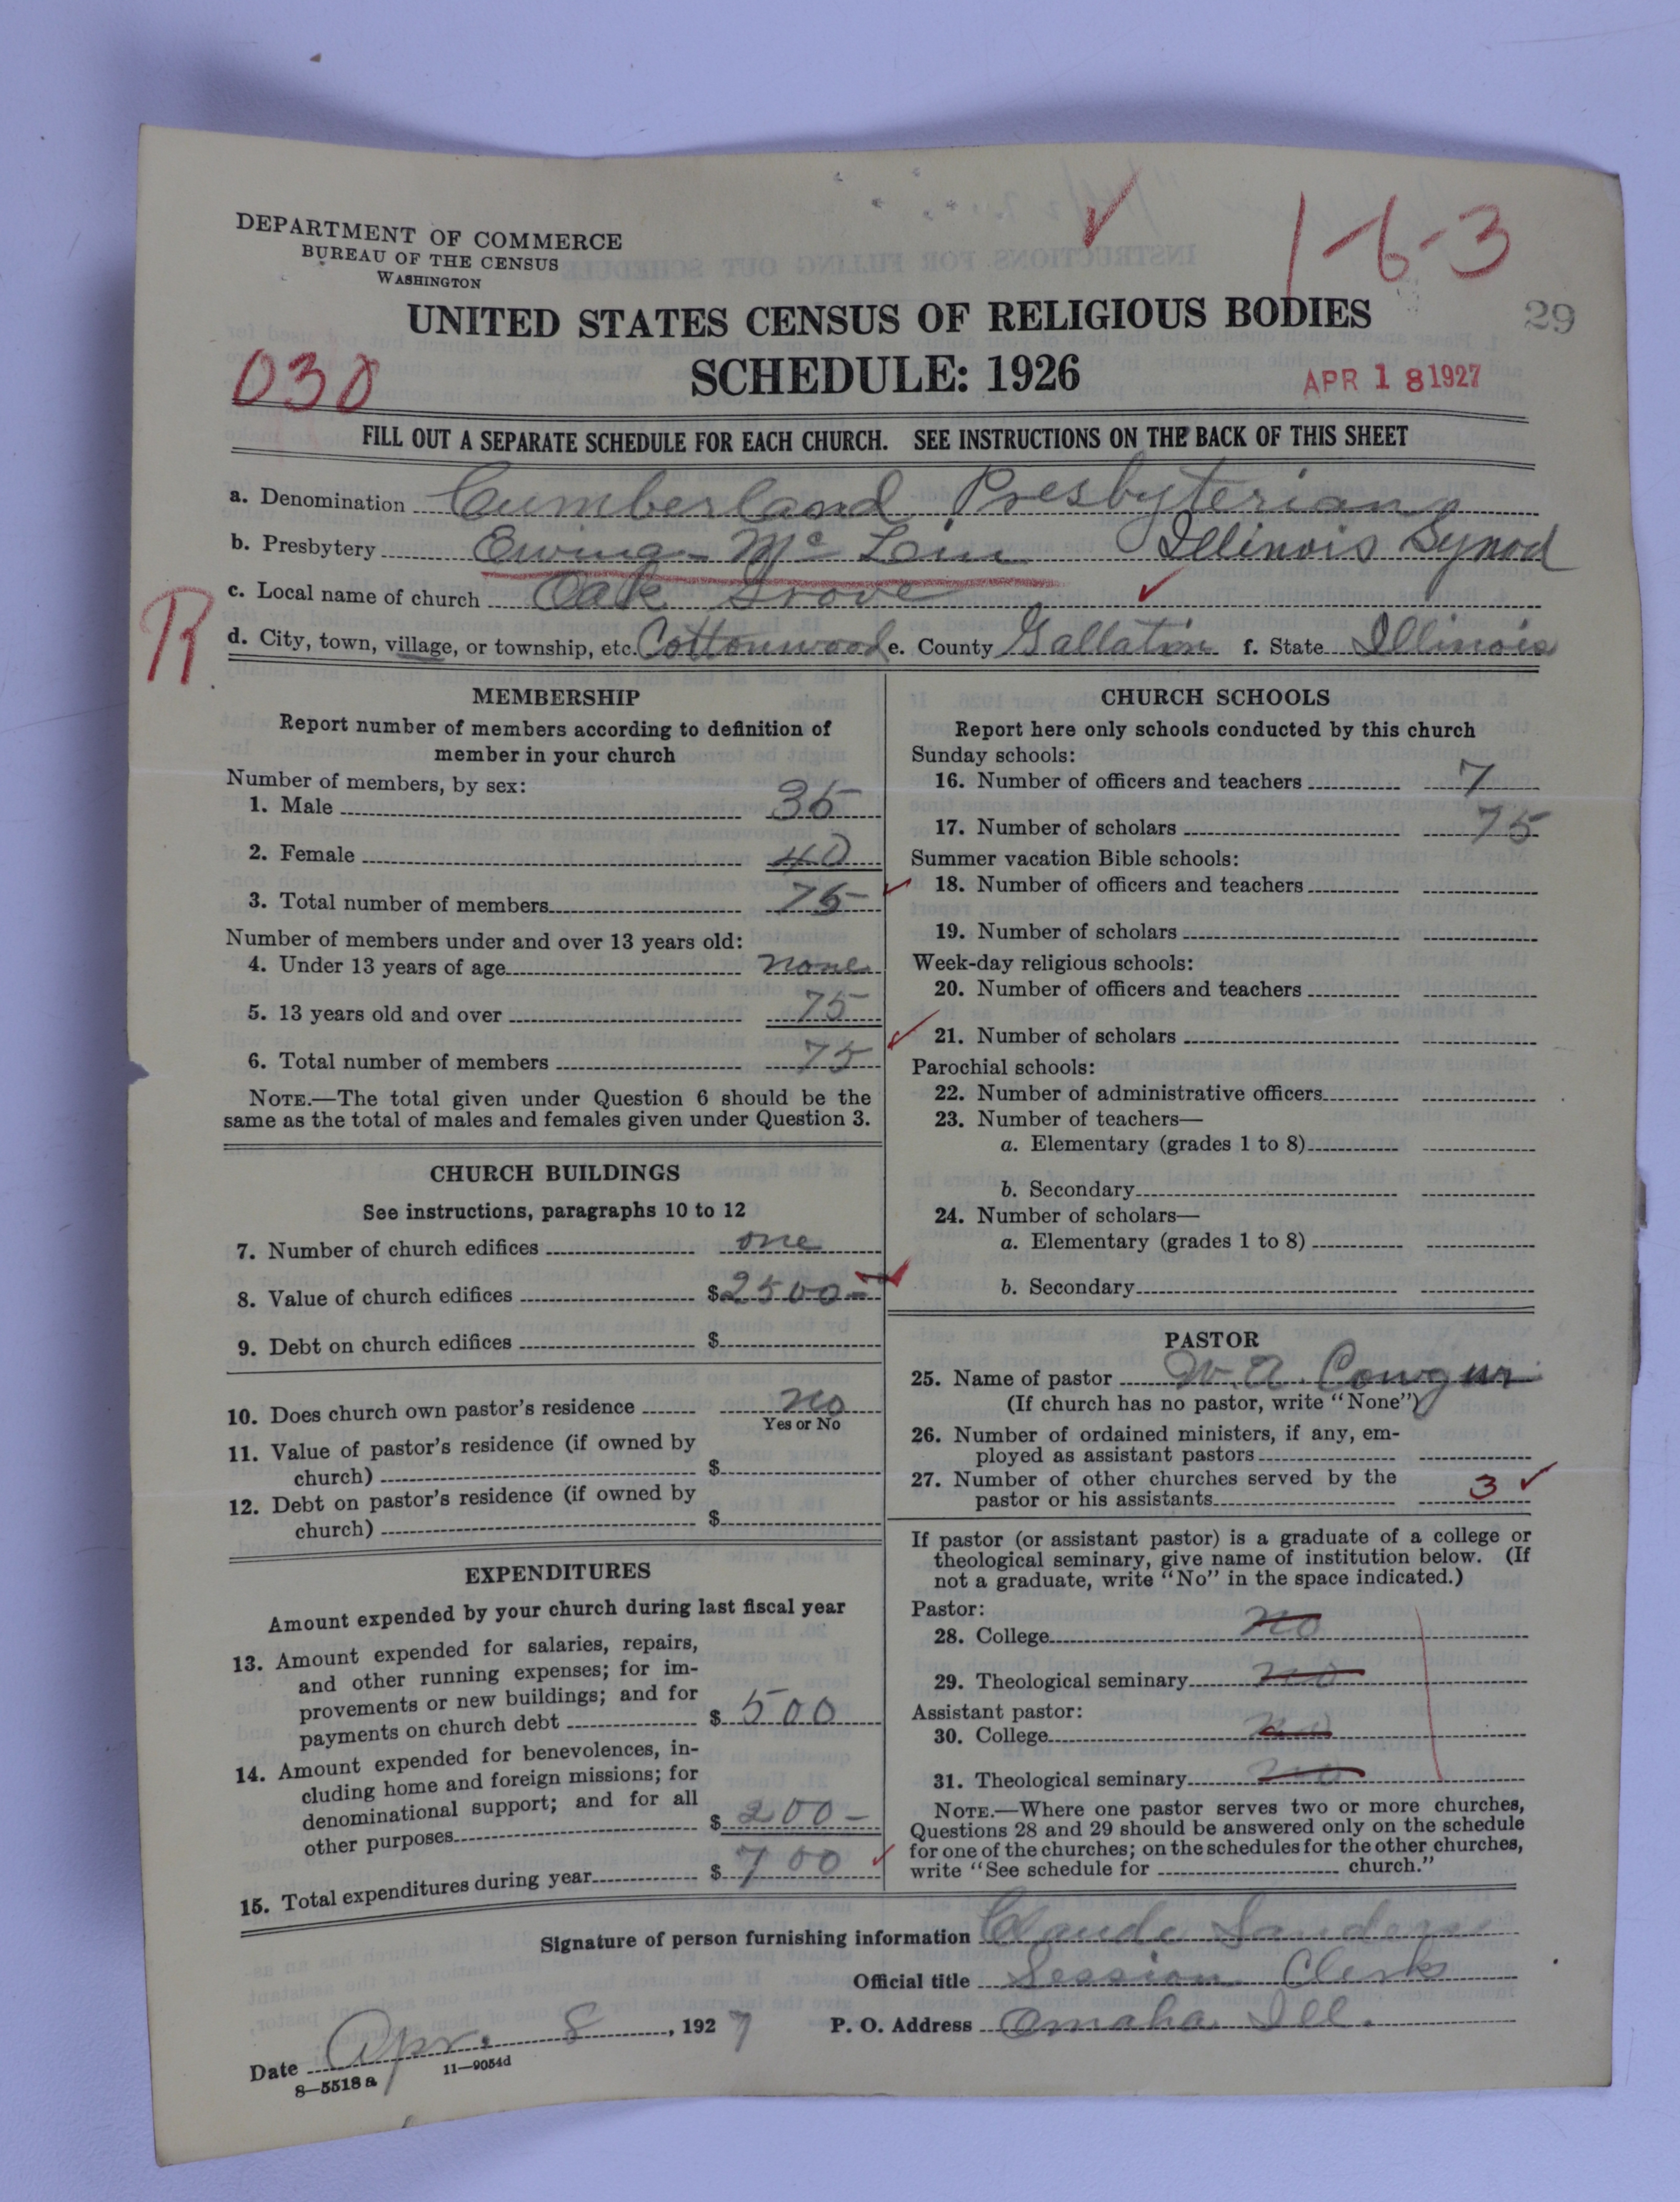 DEPARTMENT OF COMMERCE
BUREAU OF THE CENSUS
WASHINGTON
1-6-3
29
UNITED STATES CENSUS OF RELIGIOUS BODIES
SCHEDULE: 1926
030
APR 18 1927
FILL OUT A SEPARATE SCHEDULE FOR EACH CHURCH. SEE INSTRUCTIONS ON THE BACK OF THIS SHEET
a. Denomination Cumberland Presbyterian
b. Presbytery Ewing - Mc Lin Illinois Synod
c. Local name of church Oak Grove
R
d. City, town, village, or township, etc. Cottonwood e. County Gallatin f. State Illinois
MEMBERSHIP
Report number of members according to definition of
member in your church
Number of members, by sex:
1. Male 35
2. Female 40
3. Total number of members 75
Number of members under and over 13 years old:
4. Under 13 years of age none
5. 13 years old and over 75
6. Total number of members 75
NOTE.—The total given under Question 6 should be the
same as the total of males and females given under Question 3.
CHURCH BUILDINGS
See instructions, paragraphs 10 to 12
7. Number of church edifices one
8. Value of church edifices $2500-
9. Debt on church edifices $
10. Does church own pastor's residence no
Yes or No
11. Value of pastor's residence (if owned by
church) $
12. Debt on pastor's residence (if owned by
church) $
EXPENDITURES
Amount expended by your church during last fiscal year
13. Amount expended for salaries, repairs,
and other running expenses; for im-
provements or new buildings; and for
payments on church debt $500
14. Amount expended for benevolences, in-
cluding home and foreign missions; for
denominational support; and for all
other purposes $200-
15. Total expenditures during year $700
CHURCH SCHOOLS
Report here only schools conducted by this church
Sunday schools:
16. Number of officers and teachers 7
17. Number of scholars 75
Summer vacation Bible schools:
18. Number of officers and teachers
19. Number of scholars
Week-day religious schools:
20. Number of officers and teachers
21. Number of scholars
Parochial schools:
22. Number of administrative officers
23. Number of teachers—
a. Elementary (grades 1 to 8)
b. Secondary
24. Number of scholars—
a. Elementary (grades 1 to 8)
b. Secondary
PASTOR
25. Name of pastor W. A.
(If church has no pastor, write "None")
26. Number of ordained ministers, if any, em-
ployed as assistant pastors
27. Number of other churches served by the
pastor or his assistants 3
If pastor (or assistant pastor) is a graduate of a college or
theological seminary, give name of institution below. (If
not a graduate, write "No" in the space indicated.)
Pastor:
28. College no
29. Theological seminary no
Assistant pastor:
30. College no
31. Theological seminary no
NOTE.—Where one pastor serves two or more churches,
Questions 28 and 29 should be answered only on the schedule
for one of the churches; on the schedules for the other churches,
write "See schedule for church."
Signature of person furnishing information Claude Sanders
Official title Session Clerk
Date Apr. 8, 1927 P. O. Address Omaha Ill.
8—5518 a 11—9054d